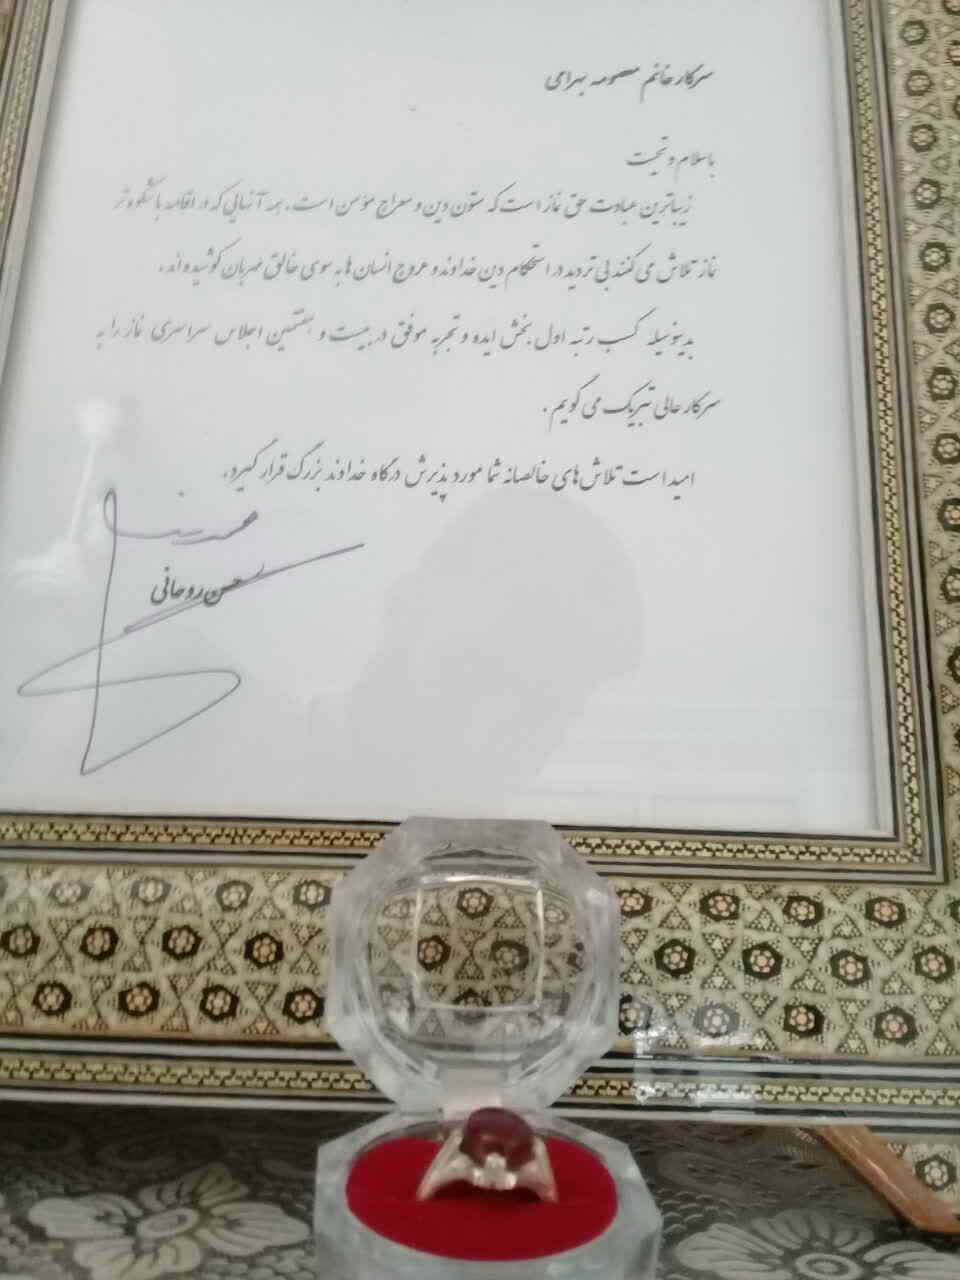 سرکار خانم معصومه بهرامی
با سلام و تحیت
زیباترین عبادت حق نماز است که ستون دین و معراج مؤمن است. همه آنهایی که در اقامه باشکوه تر
نماز تلاش می کنند بی تردید در استحکام دین خداوند و عروج انسان ها به سوی خالق مهربان کوشیده اند.
بدینوسیله کسب رتبه اول بخش ایده و تجربه موفق در بیست و هفتمین اجلاس سراسری نماز را به
سرکار عالی تبریک می گویم.
امید است تلاش های خالصانه شما مورد پذیرش درگاه خداوند بزرگ قرار گیرد.
حسن روحانی